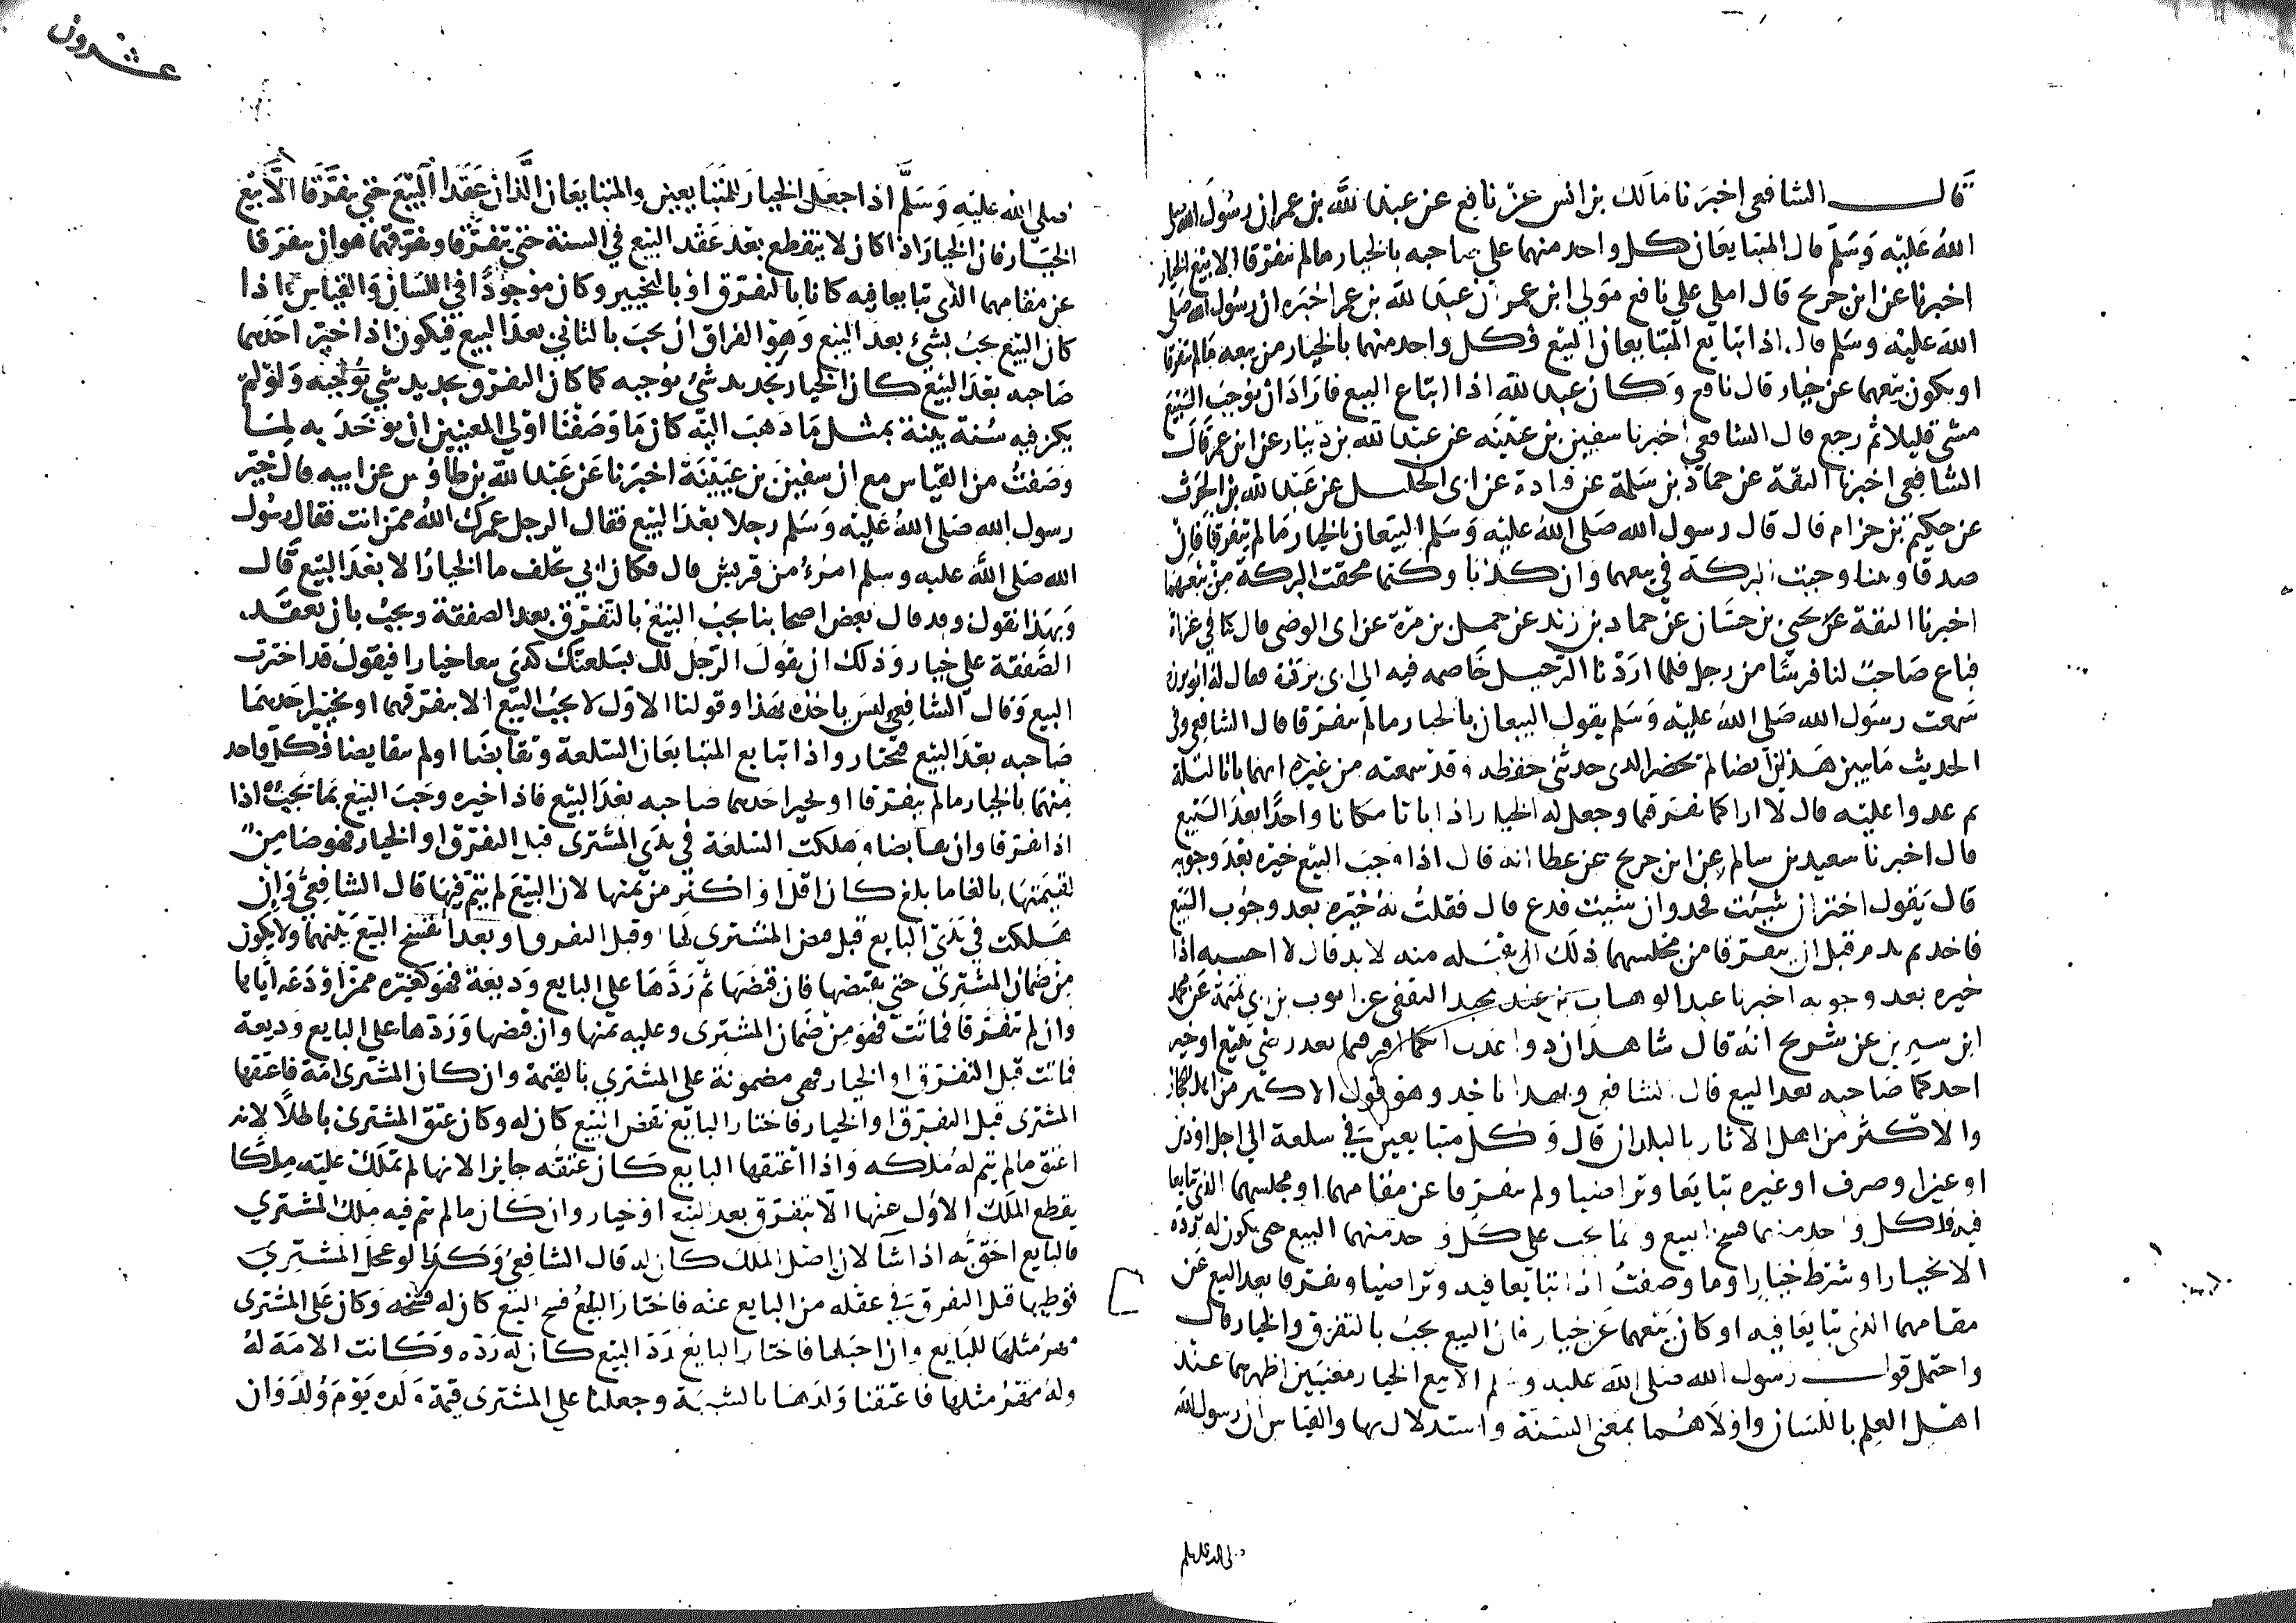 قال الشافعي اخبرنا مالك بن انس عن نافع عن عبد الله بن عمر ان رسول الله صلى
الله عليه وسلم قال المتبايعان كل واحد منهما على صاحبه بالخيار ما لم يتفرقا الا بيع الخيار
اخبرنا عن ابن جريج قال املى علي نافع مولى ابن عمر ان عبد الله بن عمر اخبره ان رسول الله صلى
الله عليه وسلم قال اذا تبايع المتبايعان البيع فكل واحد منهما بالخيار من بيعه ما لم يتفرقا
او يكون بيعهما عن خيار قال نافع وكان عبد الله اذا ابتاع البيع فاراد ان يوجب البيع
مشى قليلا ثم رجع قال الشافعي اخبرنا سفين بن عيينه عن عبد الله بن دينار عن ابن عمر قال
الشافعي اخبرنا الثقة عن حماد بن سلمة عن قتادة عن ابي الخليل عن عبد الله بن الحرث
عن حكيم بن حزام قال قال رسول الله صلى الله عليه وسلم البيعان بالخيار ما لم يتفرقا فان
صدقا وبينا وجبت البركة في بيعهما وان كذبا وكتما محقت البركة من بيعهما
اخبرنا الثقة عن يحيى بن حسان عن حماد بن زيد عن جميل بن مرة عن ابى الوضى قال كنا في غزاة
فباع صاحب لنا فرسا من رجل فلما اردنا الرحيل خاصمه فيه الى ابى برزة فقال له ابو برزة
سمعت رسول الله صلى الله عليه وسلم يقول البيعان بالخيار ما لم يتفرقا قال الشافعي وفى
الحديث ما يبين هذا ايضا لم يحضر الذى حدثنى حفظه وقد سمعته من غيره انهما باتا ليلة
ثم غدوا عليه قال لا اراكما تفرقتما وجعل له الخيار اذا باتا مكانا واحدا بعد البيع
قال اخبرنا سعيد بن سالم عن ابن جريج عن عطا انه قال اذا وجب البيع خيره بعد وجوبه
قال يقول اختر ان شيت فخذ وان شيت فدع قال فقلت له خيره بعد وجوب البيع
فاخذ ثم ندم قبل ان يتفرقا من مجلسهما ذلك ايقبله منه لا بد قال لا احسبه اذا
خيره بعد وجوبه اخبرنا عبد الوهاب بن عبد المجيد الثقفي عن ايوب بن ابي تميمة عن محمد
ابن سيرين عن شريح انه قال شاهدان ذوا عدل انكما افترقتما بعد رضى ببيع او خير
احدكما صاحبه بعد البيع قال الشافعي وبهذا ناخذ وهو قول الاكثر من اهل الحجاز
والاكثر من اهل الاثار بالبلدان قال وكل متبايعين في سلعة الى اجل او دين
او عين او صرف او غيره تبايعا وتراضيا ولم يتفرقا عن مقامهما او مجلسهما الذى تبايعا
فيه فلكل واحد منهما فسخ البيع وانما يجب على كل واحد منهما البيع حتى لا يكون له رده
الا بخيار او شرط خيار او ما وصفت اذا تبايعا فيه وتراضيا وتفرقا بعد البيع عن
مقامهما الذى تبايعا فيه او كان بيعهما عن خيار فان البيع يجب بالتفرق والخيار قال
واحتمل قول رسول الله صلى الله عليه وسلم الا بيع الخيار معنيين اظهرهما عند
اهل العلم باللسان واولاهما بمعنى السنة واستدلال بها والقياس ان رسول الله
عشرون
صلى الله عليه وسلم اذا جعل الخيار للمتبايعين والمتبايعان الذان عقدا البيع حتى يتفرقا الا بيع
الخيار فان الخيار اذا كان لا ينقطع بعد عقد البيع في السنة حتى يتفرقا وتفرقهما هو ان يتفرقا
عن مقامهما الذى تبايعا فيه كانا بالتفرق او بالتخيير وكان موجودا في اللسان والقياس اذا
كان البيع يجب بشيء بعد البيع وهو الفراق ان يجب بالثاني بعد البيع فيكون اذا خير احدهما
صاحبه بعد البيع كان الخيار تجديد شيء يوجبه كما كان التفرق تجديد شي يوجبه ولو لم
يكن فيه سنة بينة بمثل ما ذهبت اليه كان ما وصفنا اولى المعنيين ان يوخذ به لما
وصفت من القياس مع ان سفين بن عيينة اخبرنا عن عبد الله بن طاوس عن ابيه قال خير
رسول الله صلى الله عليه وسلم رجلا بعد البيع فقال الرجل عمرك الله ممن انت فقال رسول
الله صلى الله عليه وسلم امرؤ من قريش قال فكان ابي يحلف ما الخيار الا بعد البيع قال
وبهذا نقول وقد قال بعض اصحابنا يجب البيع بالتفرق بعد الصفقة ويجب بان يعقد
الصفقة على خيار وذلك ان يقول الرجل لك بسلعتك كذى بيعا خيارا فيقول قد اخترت
البيع وقال الشافعي وليس ناخذ بهذا وقولنا الاول لا يجب البيع الا بتفرقهما او تخيير احدهما
صاحبه بعد البيع فيختار واذا تبايع المتبايعان السلعة وتقابضا او لم يتقابضا فكل واحد
منهما بالخيار ما لم يتفرقا او يخير احدهما صاحبه بعد البيع فاذا خيره وجب البيع بما يجب به اذا
اذا تفرقا وان تقابضا وهلكت السلعة في يدي المشترى قبل التفرق او الخيار فهو ضامن
لقيمتها بالغا ما بلغ كان اقل او اكثر من ثمنها لان البيع لم يتم فيها قال الشافعي وان
هلكت في يدي البايع قبل قبض المشترى لها وقبل التفرق او بعد انفسخ البيع بينهما ولا يكون
من ضمان المشترى حتى يقبضها فان قبضها ثم ردها على البايع وديعة فهو كغيره ممن اودعه اياها
وان لم تفرقا فماتت فهو من ضمان المشترى وعليه ثمنها وان قبضها وردها على البايع وديعة
فماتت قبل التفرق او الخيار فهي مضمونة على المشتري بالقيمة وان كان المشترى امة فاعتقها
المشترى قبل التفرق او الخيار فاختار البايع نقض البيع كان له وكان عتق المشترى باطلا لانه
اعتق ما لم يتم له ملكه واذا اعتقها البايع كان عتقه جايزا لانها لم تملك عليه ملكا
يقطع الملك الاول عنها الا بتفرق بعد البيع او خيار وان كان ما لم يتم فيه ملك المشتري
فالبايع احق به اذا شا لان اصل الملك كان له قال الشافعي وكذا لو عجل المشتري
فوطيها قبل التفرق في غفلة من البايع عنه فاختار البايع فسخ البيع كان له فسخه وكان على المشترى
مهر مثلها للبايع وان احبلها فاختار البايع رد البيع كان له رده وكانت الامة له
وله مهر مثلها فاعتقنا ولدها بالشبهة وجعلنا على المشترى قيمة ولده يوم ولد وان